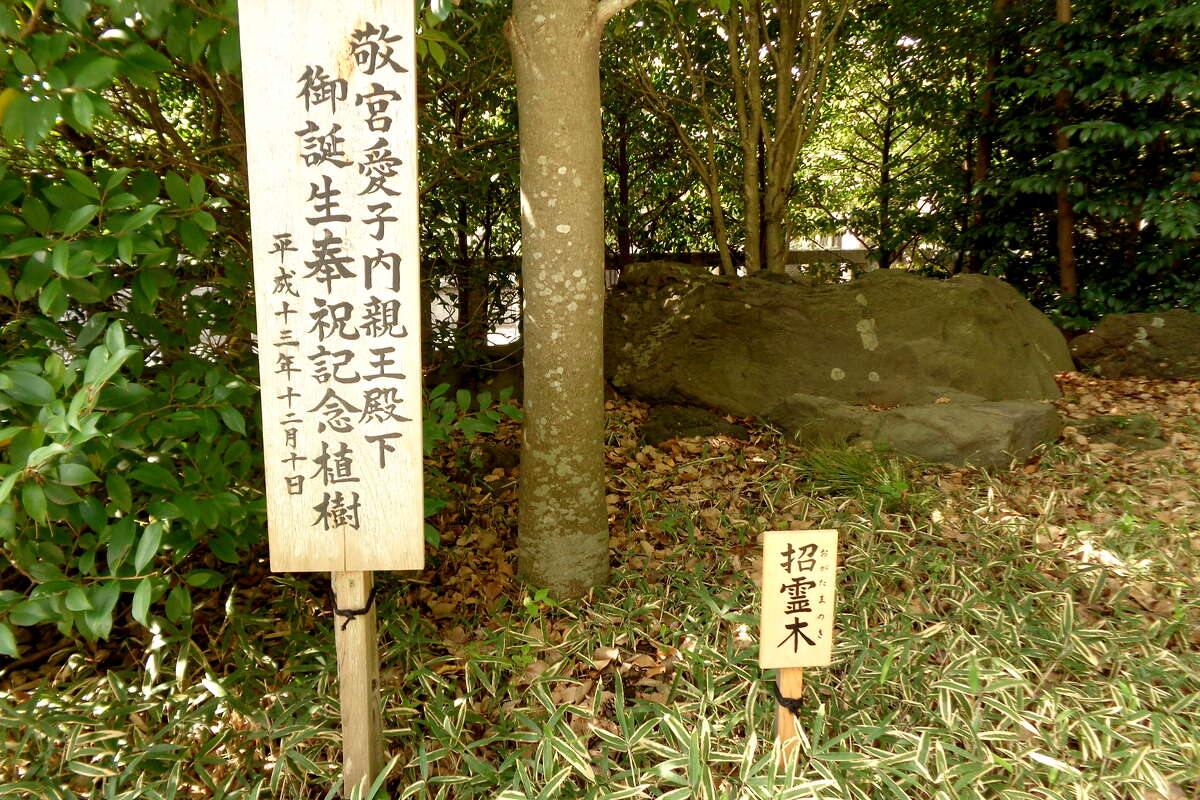 敬宮愛子内親王殿下
御誕生奉祝記念植樹
平成十三年十二月十日
招霊木
おがたまのき